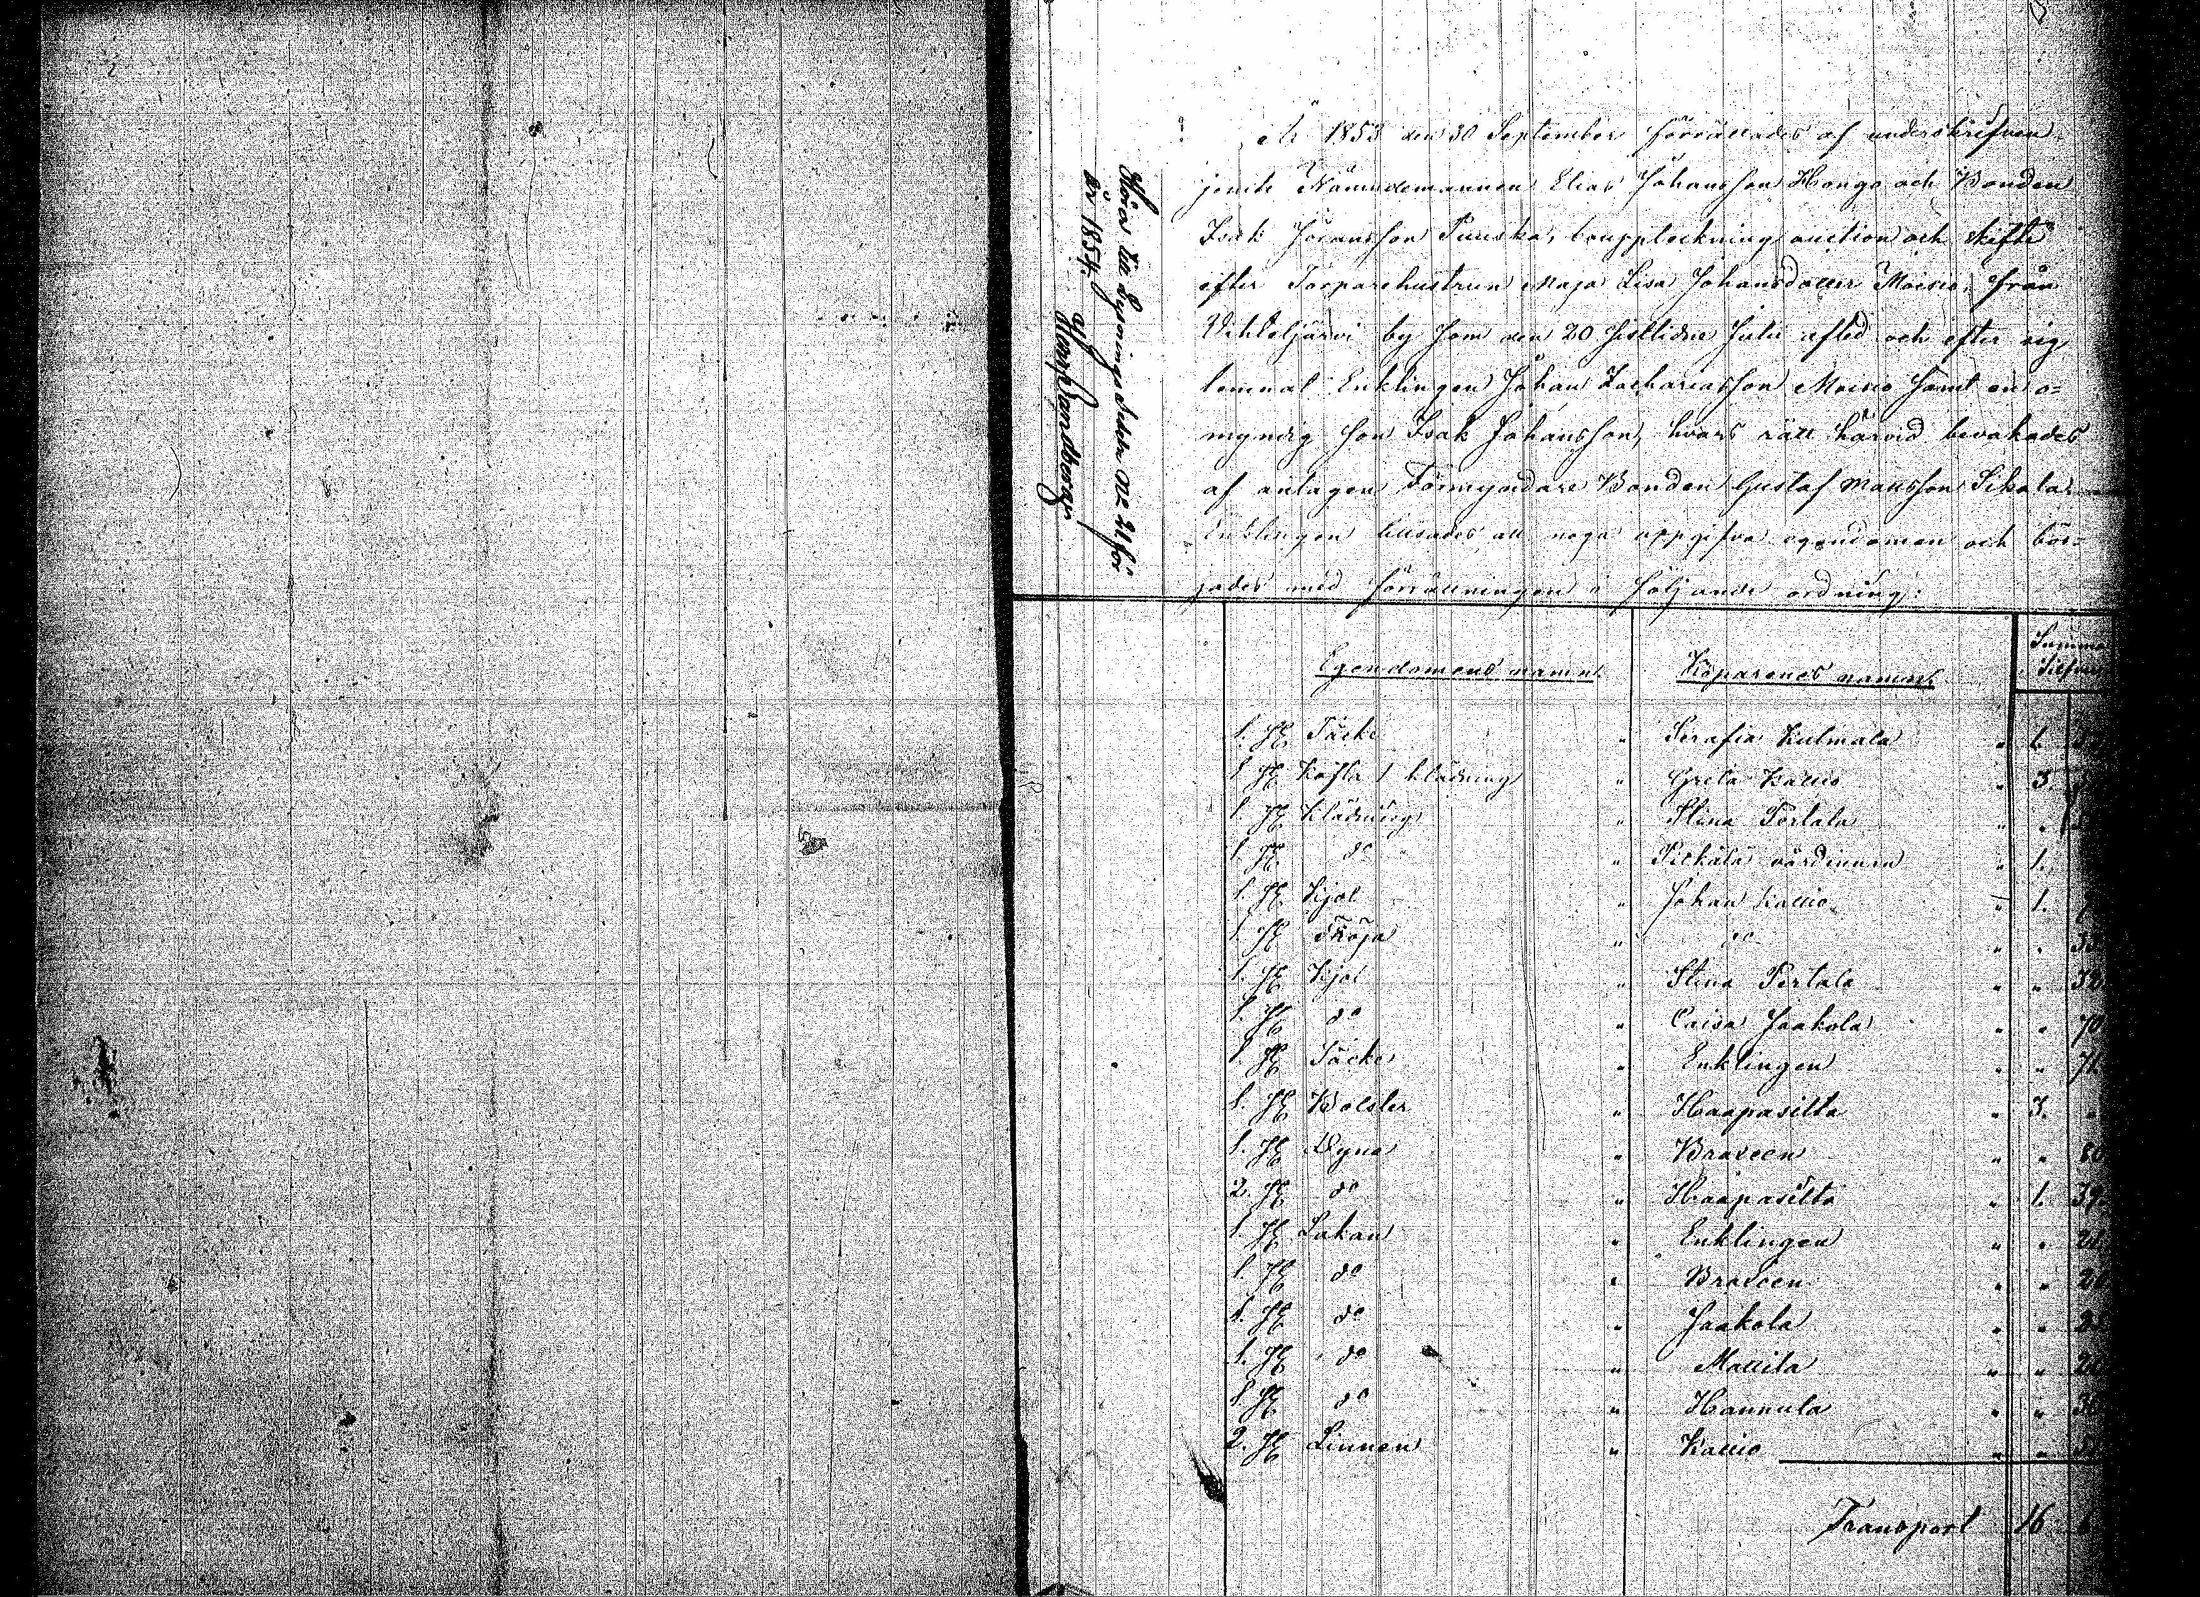 År 1853 den 30 September förrättades af underskrifven
jemte Nämndemannen Elias Johansson Hongo och Bonden
Isak Johansson Puuska, bouppteckning auction och skifte
efter Torparehustrun Maja Lisa Johansdotter Moisio, från
Vihteljärvi by som den 20 sistlidne Julii afled och efter sig
lemnat Enklingen Johan Zachariasson Moisio samt en o=
myndig son Isak Johansson, hvars rätt härvid bevakades
af antagen Förmyndare Bonden Gustaf Mattsson Sikala
Enklingen tillsades att noga uppgifva egendomen och bör=
jades med förrättningen i följande ordning:
Höres till Lysnings Sedeln No 21 för
år 1854.
af Herrn Sandberg
Egendomens namn. Köparenes namn. Summa Silfver
1. st Täcke " Serafia Kulmala " 1.
1 st Kofta 1 klädning " Greta Kallio " 3.
1. st Klädning " Stina Pertala " "
1 st do " Pitkälä värdinnan " 1.
1. st Kjol " Johan Kallio " 1.
1. st Tröja " do " " 35
1. st Kjol " Stina Pertala " " 32
1. st do " Caisa Jaakola " " 70
1 st Täcke " Enklingen " " 71
1. st Bolster " Haapasilta " 3. "
1. st Dyna " Braxeen " " 80
2. st do " Haapasilta " 1. 39.
1 st Lakan " Enklingen " " 21
1. st do " Braxeen " " 20
1. st do " Jaakola " "
1. st do " Mattila " "
1 st do " Hannula " " 30
2. st Linnen " Kallio " "
Transport 16